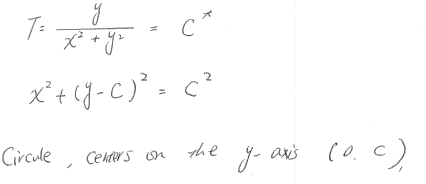 T = y / (x² + y²) = C*
x² + (y - C)² = C²
Circule, centers on the y-axis (0. C),